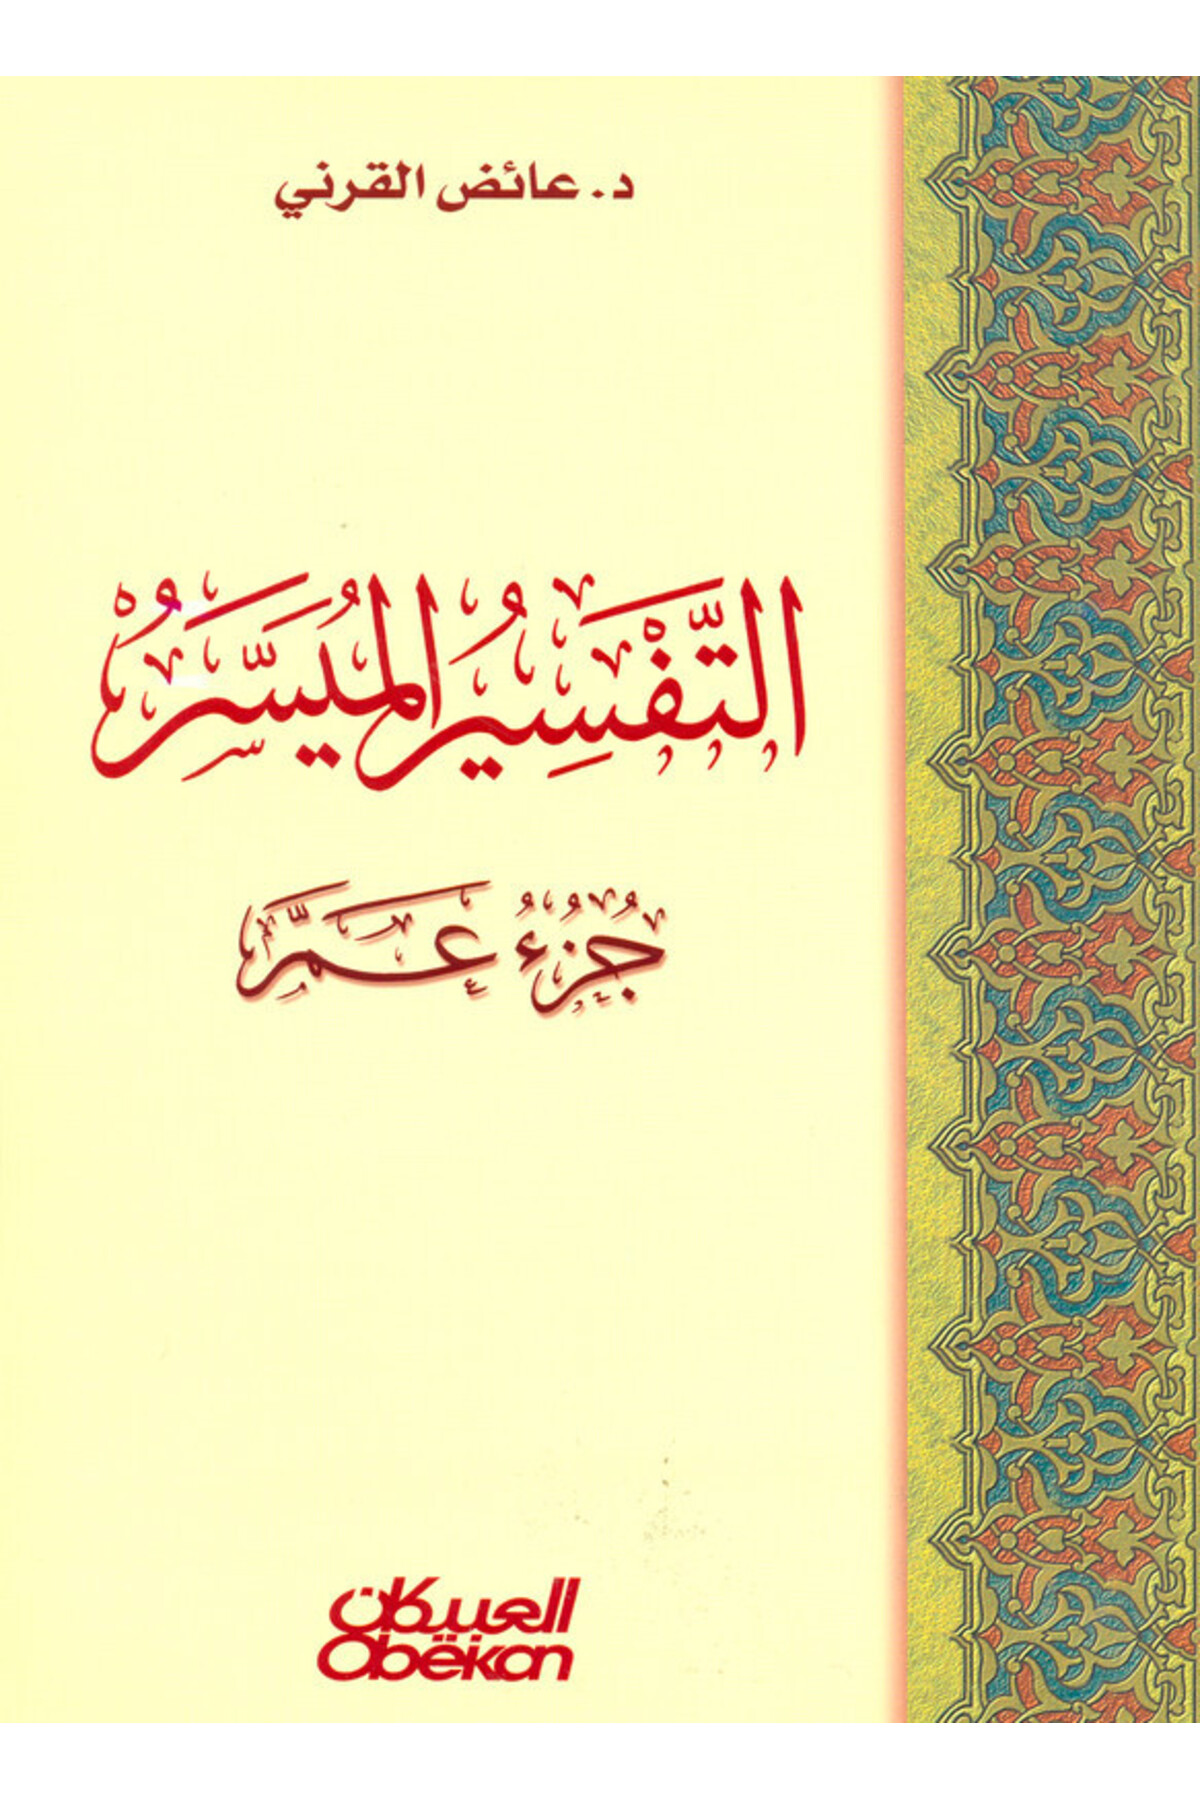 د. عائض القرني
التَّفْسِيرُ المُيَسَّرُ
جُزْءُ عَمَّ
العبيكان
Obëkan